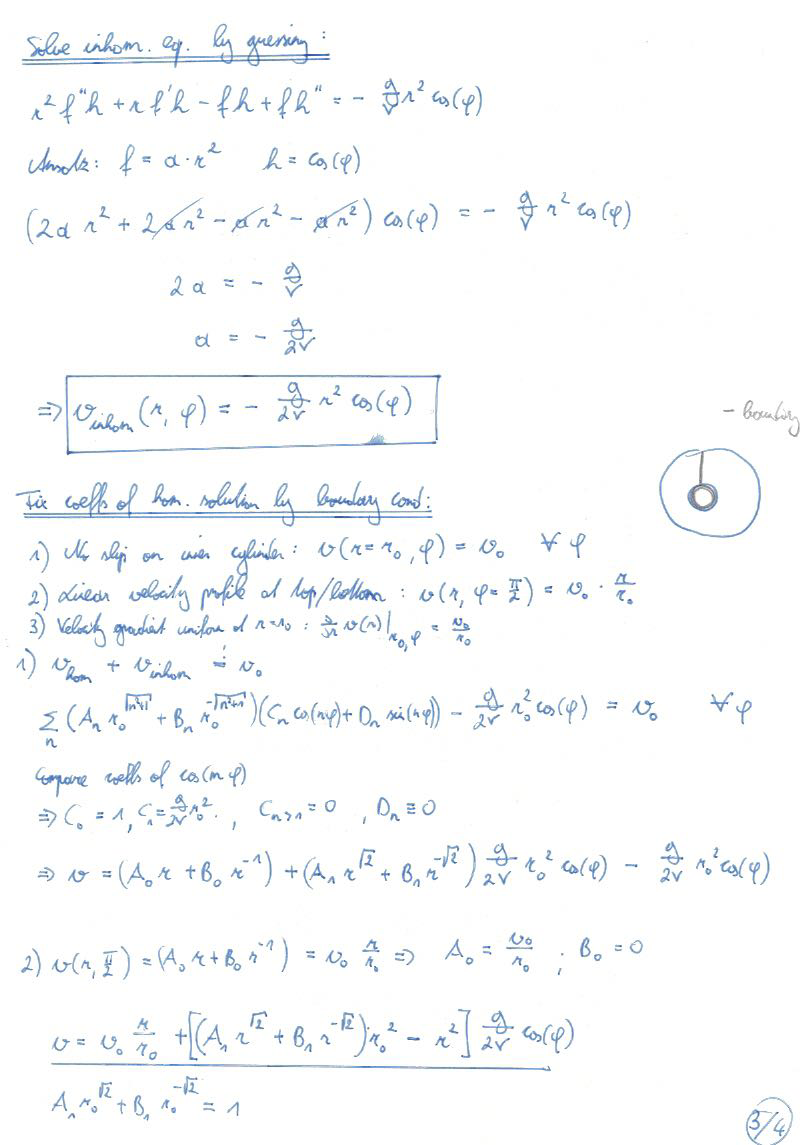 Solve inhom. eq. by guessing:
r² f''h + r f'h - fh + fh'' = - g/ν r² cos(φ)
Ansatz: f = a · r² h = cos(φ)
(2a r² + 2a r² - a r² - a r²) cos(φ) = - g/ν r² cos(φ)
2a = - g/ν
a = - g/2ν
⇒ v_inhom (r, φ) = - g/2ν r² cos(φ)
- boundary
Fix coeffs of hom. solution by boundary cond:
1) No slip on inner cylinder: v(r=r₀, φ) = v₀ ∀ φ
2) Linear velocity profile at top/bottom: v(r, φ=π/2) = v₀ · r/r₀
3) Velocity gradient uniform at r=r₀: ∂/∂r v(r)|_r₀,φ = v₀/r₀
1) v_hom + v_inhom =! v₀
∑_n (A_n r₀^√(n²+1) + B_n r₀^-√(n²+1))(C_n cos(nφ) + D_n sin(nφ)) - g/2ν r₀² cos(φ) = v₀ ∀ φ
Compare coeffs of cos(mφ)
⇒ C₀ = 1, C₁ = g/2ν r₀², C_n>1 = 0, D_n ≡ 0
⇒ v = (A₀ r + B₀ r⁻¹) + (A₁ r^√2 + B₁ r^-√2) g/2ν r₀² cos(φ) - g/2ν r₀² cos(φ)
2) v(r, π/2) = (A₀ r + B₀ r⁻¹) = v₀ r/r₀ ⇒ A₀ = v₀/r₀ ; B₀ = 0
v = v₀ r/r₀ + [(A₁ r^√2 + B₁ r^-√2) · r₀² - r²] g/2ν cos(φ)
A₁ r₀^√2 + B₁ r₀^-√2 = 1
3/4